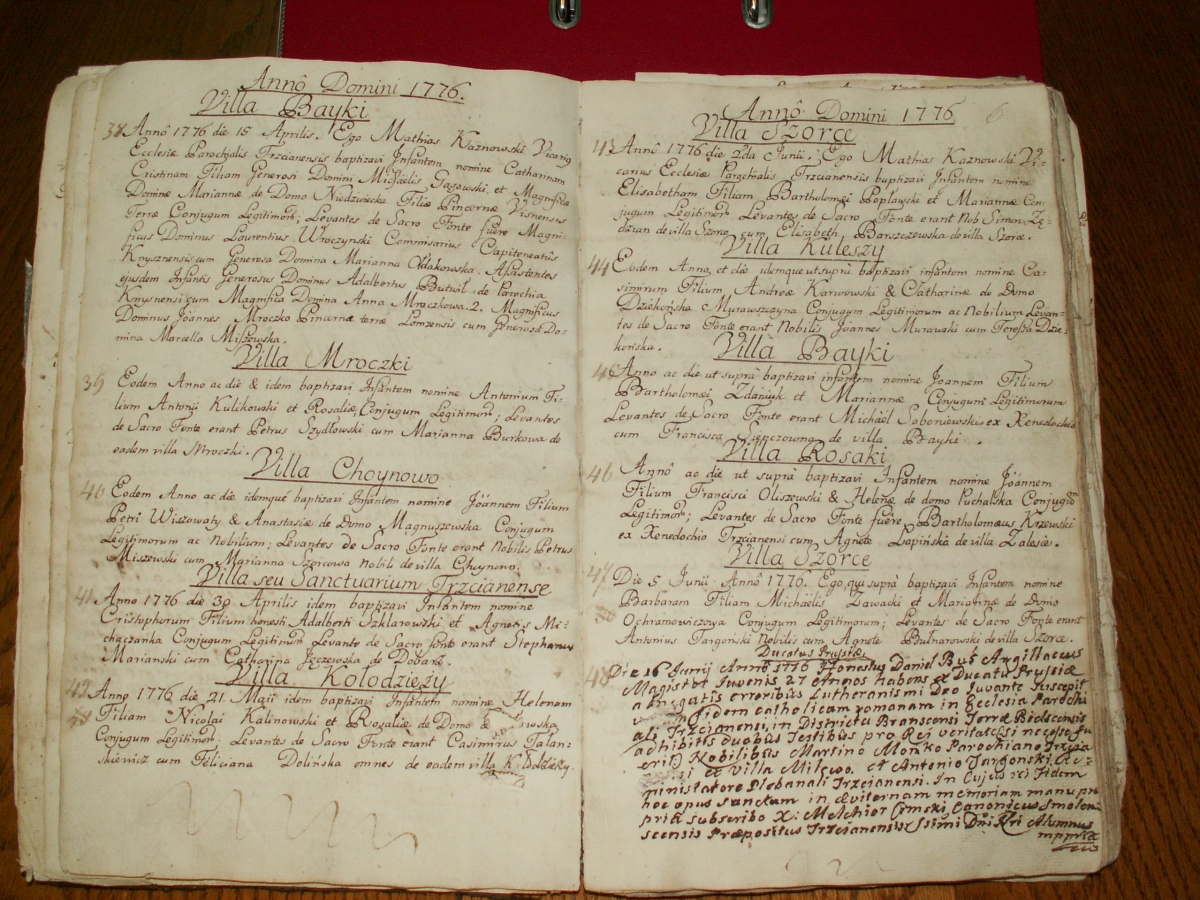 Annô Domini 1776.
Villa Bayki
38 Annô 1776 die 15 Aprilis. Ego Mathias Kaznowski Vicariꝯ
Ecclesiæ Parochialis Trzcianensis baptizavi Infantem nomine Catharinam
Cristinam Filiam Generosi Domini Michaëlis Gąsowski et Magnificæ
Dominæ Mariannæ de Domo Niedzwiecka Filiæ Pincernæ Visnensis
Terræ Conjugum Legitimor; Levantes de Sacro Fonte fuêre Magni-
ficus Dominus Laurentius Wroczynski Commisarius Capiteneatûs
Knysznensis cum Generosa Domina Marianna Assistentes
ejusdem Infantis Generosus Dominus Adalbertus Butwił de Parochia
Knysnensi cum Magnifica Domina Anna Mroczkowa. 2. Magnificus
Dominus Joannes Mroczko Pincernæ terræ Lomzensis cum Generosa Do-
mina Marcella
Villa Mroczki
39 Eodem Anno ac die & idem baptizavi Infantem nomine Antonium Fi-
lium Antonii Kulikowski et Rosaliæ Conjugum Legitimor; Levantes
de Sacro Fonte erant Petrus Szydłowski cum Marianna Burkowa de
eadem villa Mroczki.
Villa Choynowo
40 Eodem Anno ac die idemqué baptizavi Infantem nomine Jöannem Filium
Petri Wiszowaty & Anastasiæ de Domo Magnuszewska Conjugum
Legitimorum ac Nobilium; Levantes de Sacro Fonte erant Nobilis Petrus
Miszewski cum Marianna Szorcowa Nobil de villa Choynowo.
Villa seu Sanctuarium Trzcianense
41 Anno 1776 die 30 Aprilis idem baptizavi Infantem nomine
Cristophorum Filium honesti Adalberti Szklarowski et Agnetis Me-
chaczanka Conjugum Legitimor Levante de Sacro fonte erant Stephanus
Marianski cum Catharina Jęczewska de Dobarz.
Villa Kołodzieży
42 Anno 1776 die 21 Maii idem baptizavi Infantem nomine Helenam
Filiam Nicolai Kalinowski et Rosaliæ de Domo
Conjugum Legitimor. Levantes de Sacro Fonte erant Casimirus Talan-
skiewicz cum Feliciana Dolińska omnes de eadem villa
Annô Domini 1776 6
Villa Szorce
43 Annô 1776 die 2da Junii. Ego Mathias Kaznowski Vi-
carius Ecclesiæ Parochialis Trzcianensis baptizavi Infantem nomine
Elisabetham Filiam Bartholomęi Popławski et Mariannæ Con-
jugum Legitimor Levantes de Sacro Fonte erant Nob Simon Zę-
dzian de villa Szorce cum Elisabeth Barszczewska de villa Szorce.
Villa Kuleszy
44 Eodem Anno, et die idemque ut supra baptizavi infantem nomine Ca-
simirum Filium Andreæ Karwowski & Catharinæ de Domo
Dziekońska Murawszczyna Conjugum Legitimorum ac Nobilium Levan-
tes de Sacro Fonte erant Nobilis Joannes Murawski cum Teresia Dzie-
końska.
Villa Bayki
45 Anno ac die ut suprà baptizavi infantem nomine Joannem Filium
Bartholomęi Zdaniuk et Mariannæ Conjugum Legitimorum
Levantes de Sacro Fonte erant Michaël Soboniewski ex Xenodochio
cum Francisca de villa Bayki.
Villa Rosaki
46 Annô ac die ut suprà baptizavi Infantem nomine Jöannem
Filium Francisci Oliszewski & Helenæ de domo Puchalska Conjugum
Legitimor; Levantes de Sacro Fonte fuêre Bartholomæus Krzewski
ex Xenodochio Trzcianensi cum Agnete Łapińska de villa Zalesie.
Villa Szorce
47 Die 5 Junii Annô 1776. Ego, qui suprà baptizavi Infantem nomine
Barbaram Filiam Michäelis Zawacki et Mariannæ de Domo
Ochramowiczowa Conjugum Legitimorum; Levantes de Sacro Fonte erant
Antonius Targonski Nobilis cum Agnete Bulnarowski de villa Szorce.
Ducatus Prusiæ
48 Die 16 Junij Annô 1776 Honestus Daniel Buś Argillaceus
Magister Juvenis 27 Annos habens ex Ducatu Prusiæ
abnegatis erroribus Lutheranismi Deo Juvante suscepit
fidem catholicam romanam in Ecclesia Parochi-
ali Trzcianensi, in Districtu Branscensi Terræ Bielscensis
adhibitis duobus Testibus pro Rei veritate, si necesse fu-
erit, Nobilibus Martino Mońko Parochiano Trzcia-
ex Villa Milewo. et Antonio Targonski, Ad-
ministratore Plebanali Trzcianensi. In Cujus rei Fidem
hoc opus sanctum in æviternam memoriam manu pro-
priâ subscribo X: Melchior Canonicus Smolen-
scensis Præpositus Trzcianensis Alumnus
mppriâ